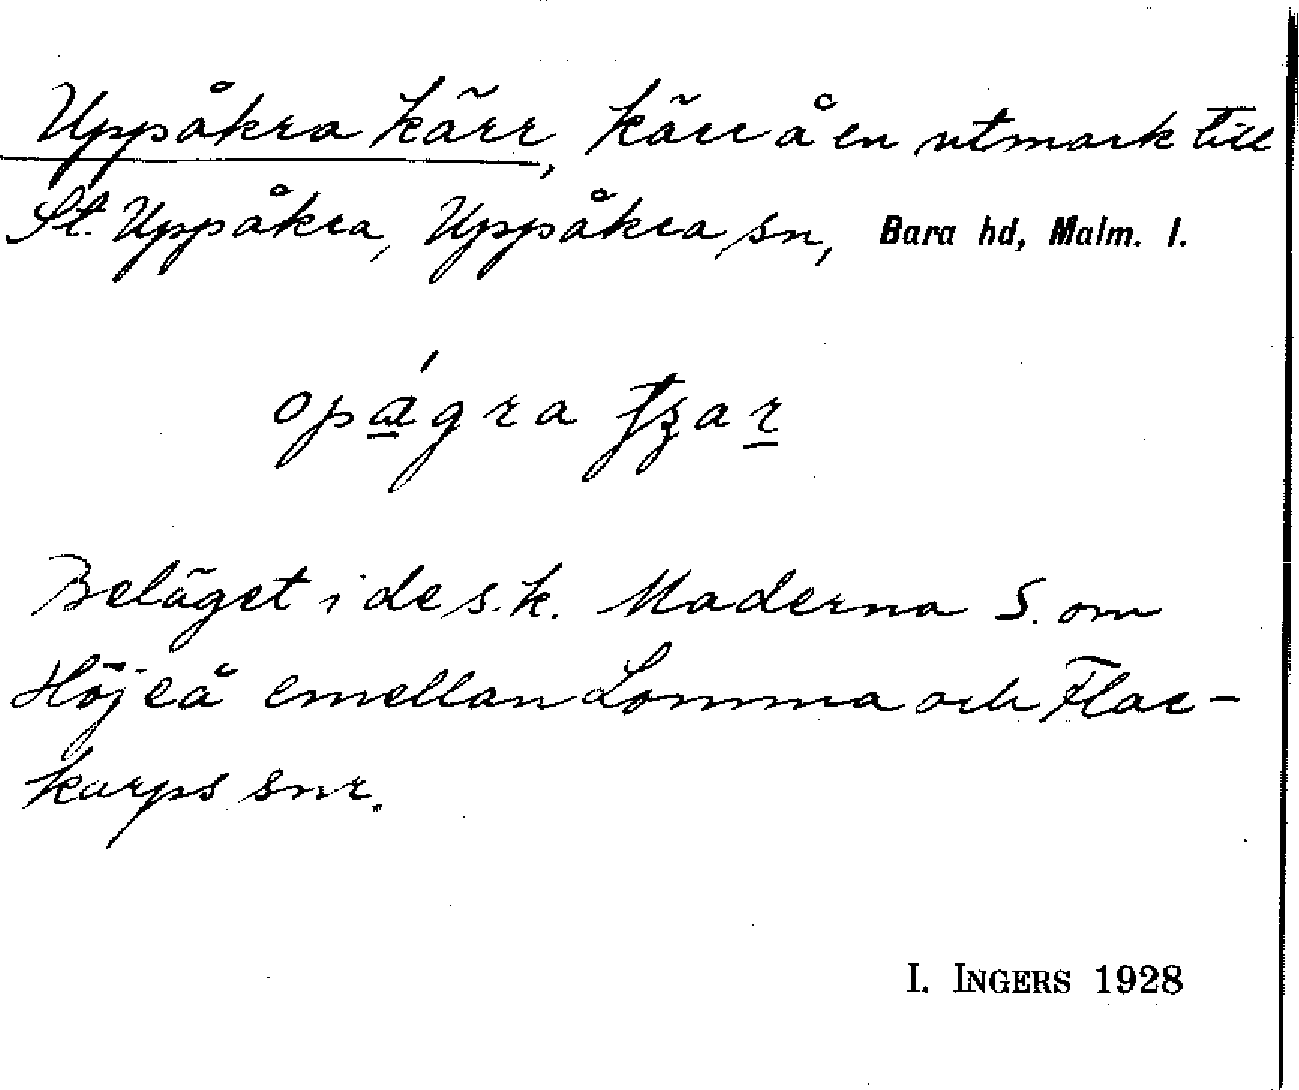 Uppåkra kärr, kärr å en utmark till
St. Uppåkra, Uppåkra sn, Bara hd, Malm. l.
opágra
Beläget i de s.k. Maderna S. om
Höjeå emellan Lomma och Flac-
karps snr.
I. INGERS 1928